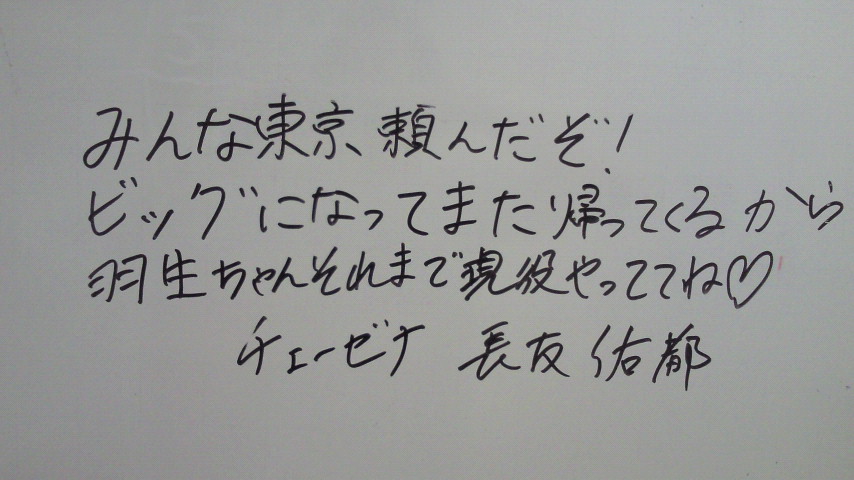 みんな東京、頼んだぞ!
ビッグになってまた帰ってくるから
羽生ちゃんそれまで現役やっててね♡
チェーゼナ 長友佑都